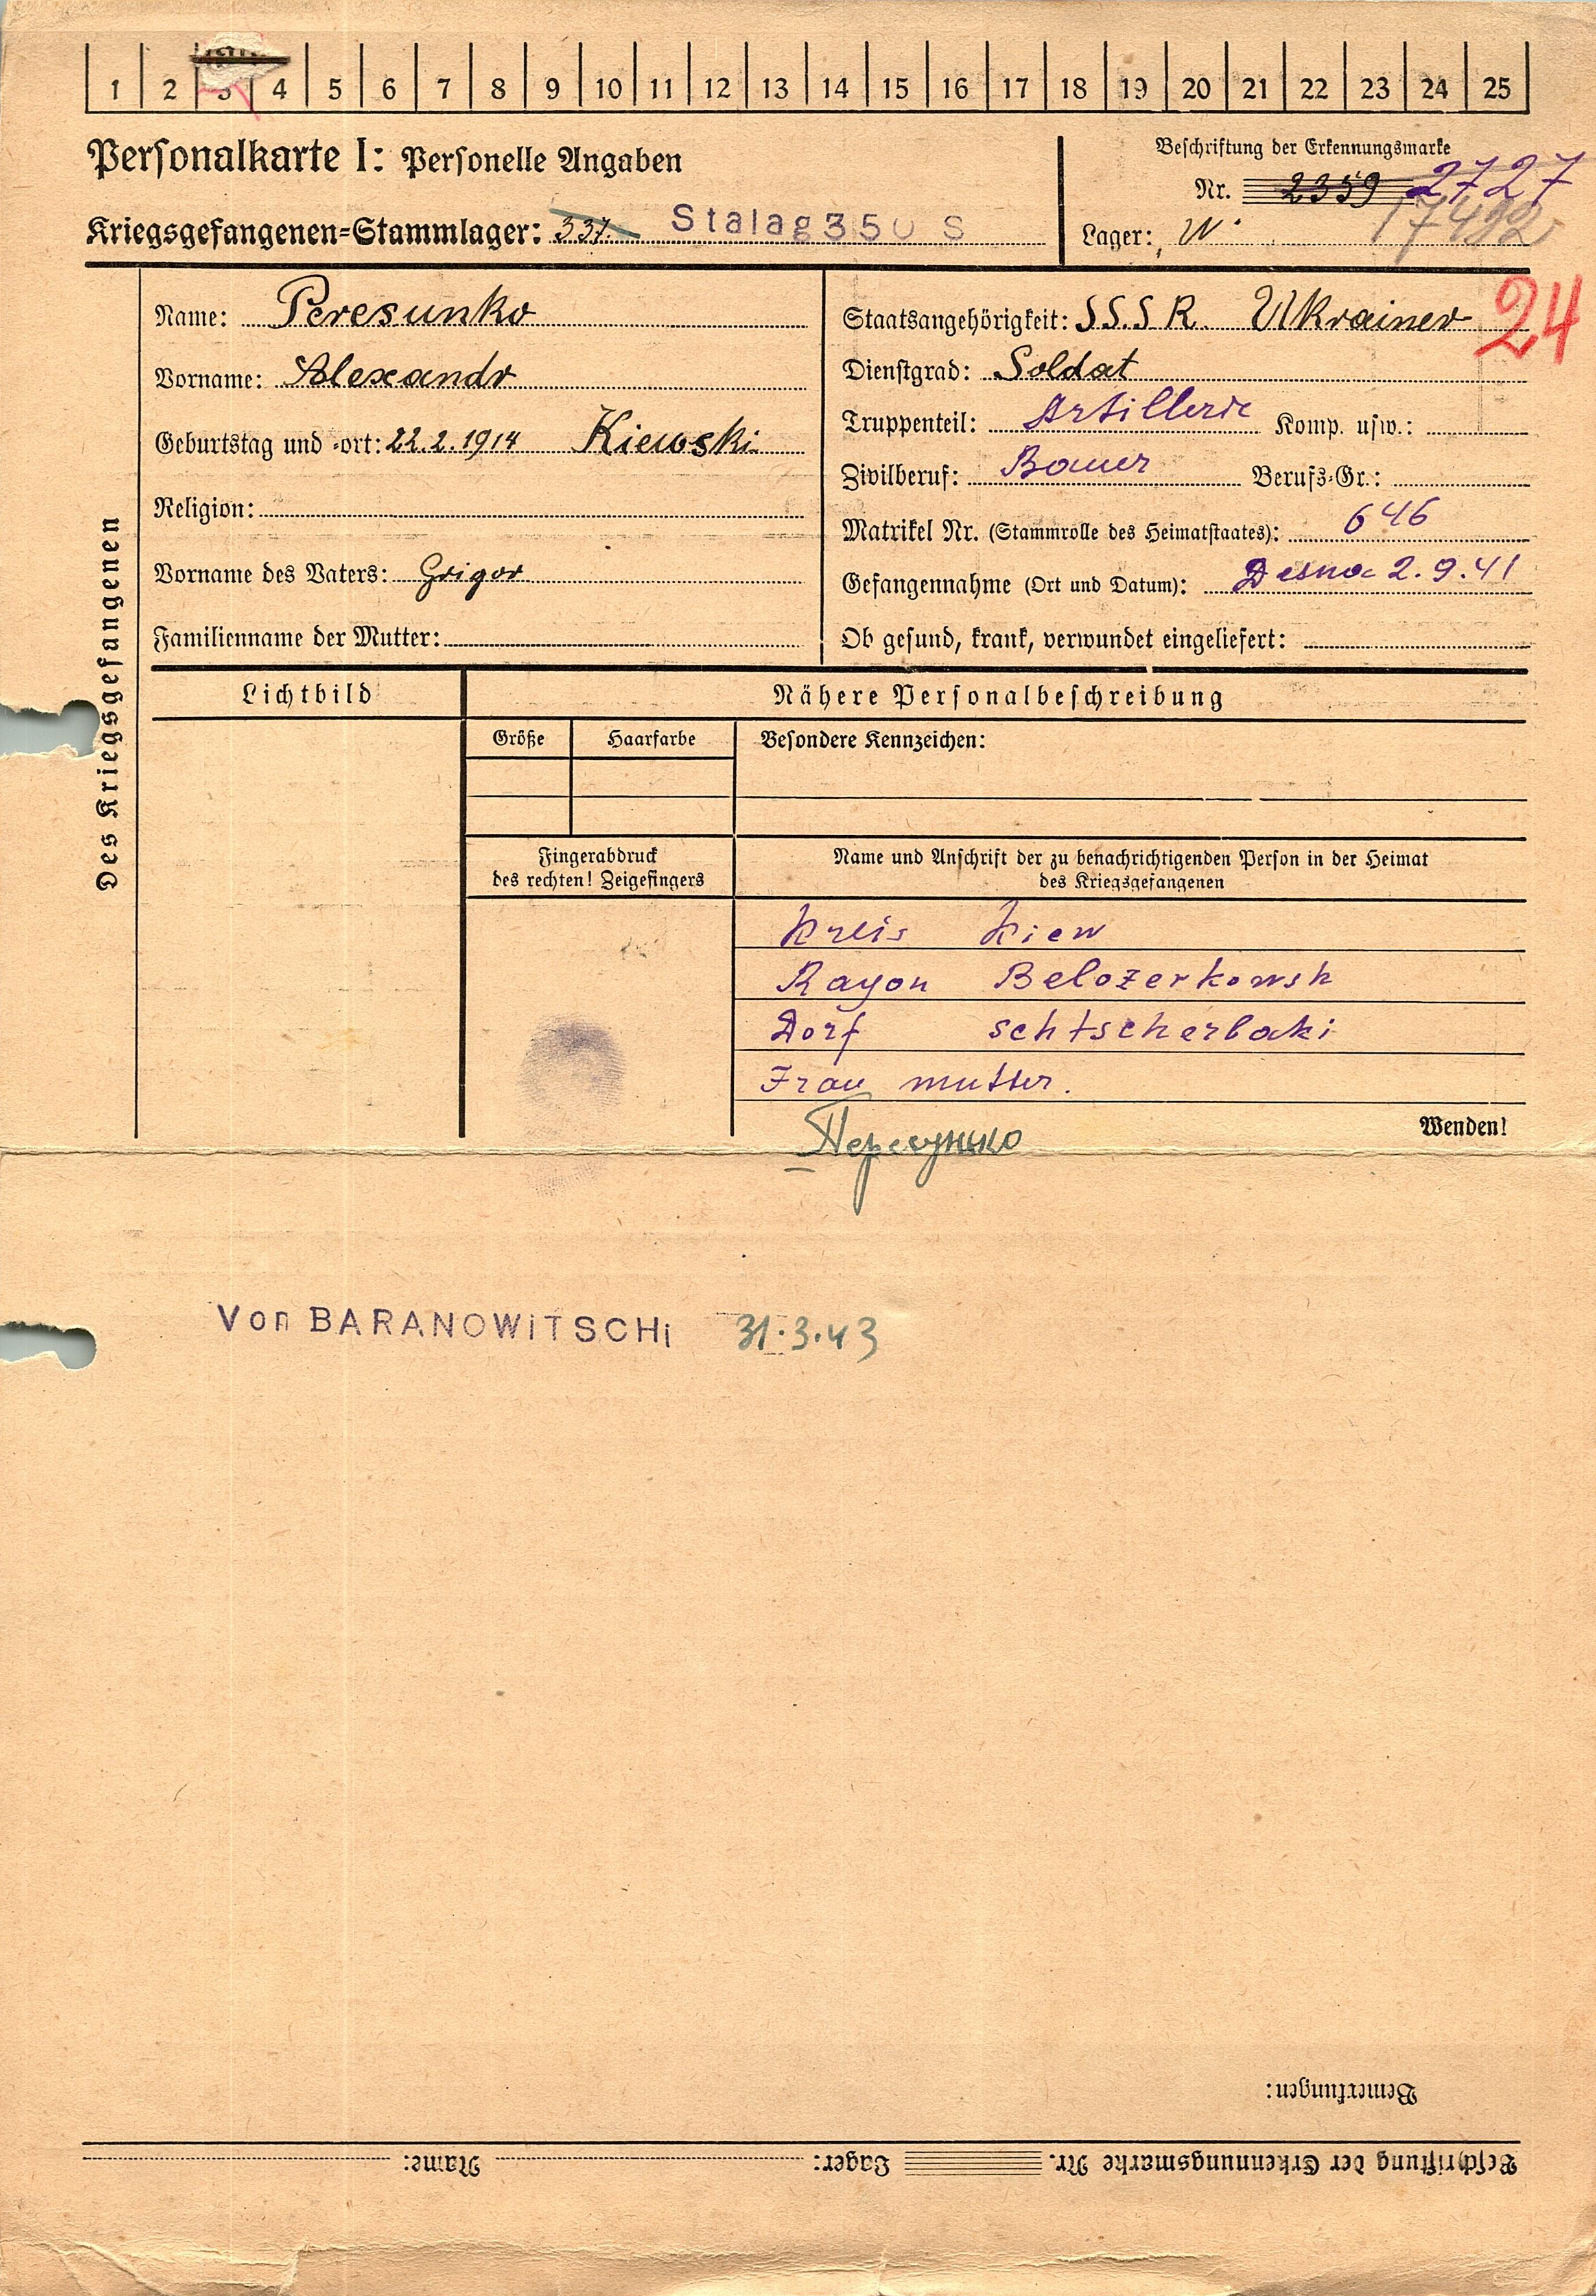 1 2 3 4 5 6 7 8 9 10 11 12 13 14 15 16 17 18 19 20 21 22 23 24 25
Personalkarte I: Personelle Angaben
Kriegsgefangenen-Stammlager: 337. Stalag 350 S
Beschriftung der Erkennungsmarke
Nr. 2359 2727
Lager: W. 17492
24
Des Kriegsgefangenen
Name: Peresunko
Vorname: Alexandr
Geburtstag und -ort: 22.2.1914 Kiewski
Religion:
Vorname des Vaters: Grigor
Familienname der Mutter:
Staatsangehörigkeit: S.S.S.R. Ukrainer
Dienstgrad: Soldat
Truppenteil: Artillerie Komp. usw.:
Zivilberuf: Bauer Berufs-Gr.:
Matrikel Nr. (Stammrolle des Heimatstaates): 646
Gefangennahme (Ort und Datum): Desna 2.9.41
Ob gesund, krank, verwundet eingeliefert:
Lichtbild
Nähere Personalbeschreibung
Größe Haarfarbe Besondere Kennzeichen:
Fingerabdruck
des rechten! Zeigefingers
Name und Anschrift der zu benachrichtigenden Person in der Heimat
des Kriegsgefangenen
Kreis Kiew
Rayon Belozerkowsk
Dorf schtscherbaki
Frau mutter.
Wenden!
Пересунько
Von BARANOWiTSCHi 31.3.43
Bemerkungen:
Beschriftung der Erkennungsmarke Nr. Lager: Name: